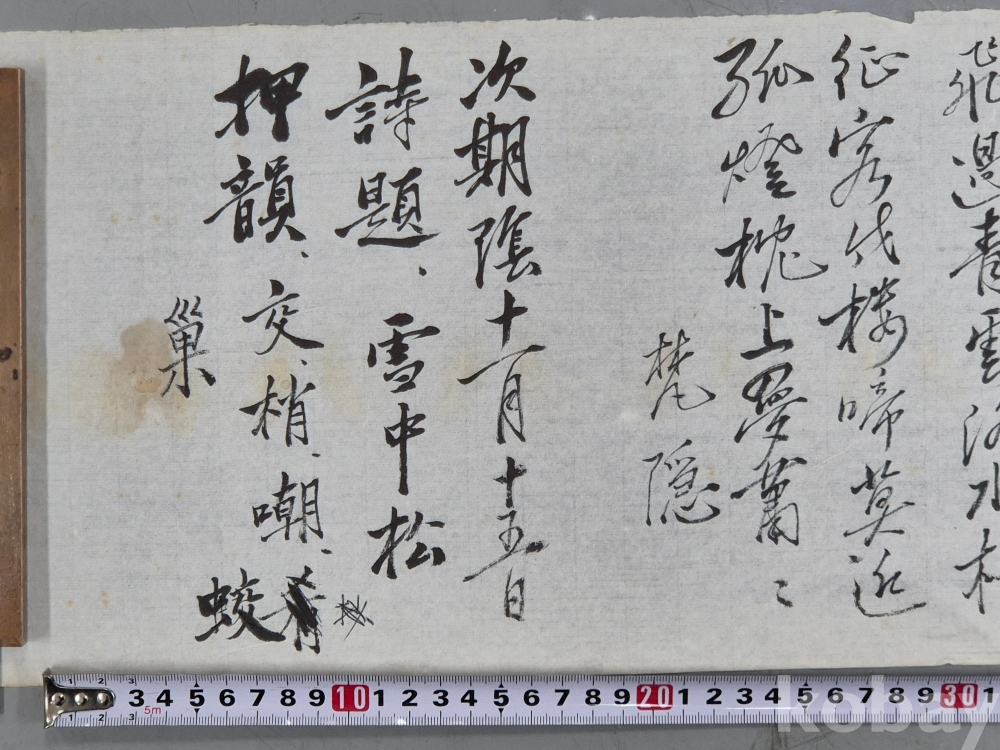 飛邊青雲洛水校
征客代樓啼莫近
孤燈枕上夢蕭〻
梵隱
次期陰十一月十五日
詩題、雪中松
押韻、交、梢、嘲、肴
蛟
巢
kobay
3 4 5 6 7 8 9 10 1 2 3 4 5 6 7 8 9 20 1 2 3 4 5 6 7 8 9 30 1
5m